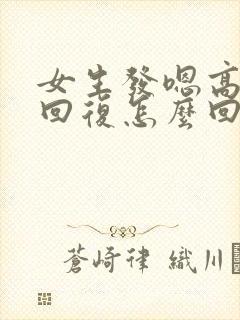 女生發嗯高
回復怎麼回
蒼崎律 織川